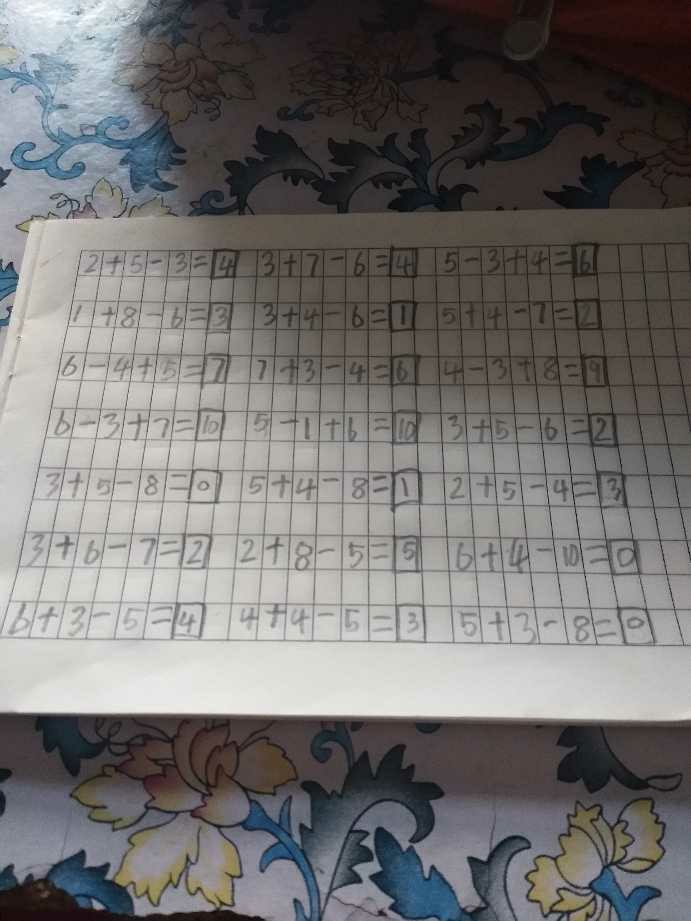 2+5-3=4 3+7-6=4 5-3+4=6
1+8-6=3 3+4-6=1 5+4-7=2
6-4+5=7 7+3-4=6 4-3+8=9
6-3+7=10 5-1+6=10 3+5-6=2
3+5-8=0 5+4-8=1 2+5-4=3
3+6-7=2 2+8-5=5 6+4-10=0
6+3-5=4 4+4-5=3 5+3-8=0